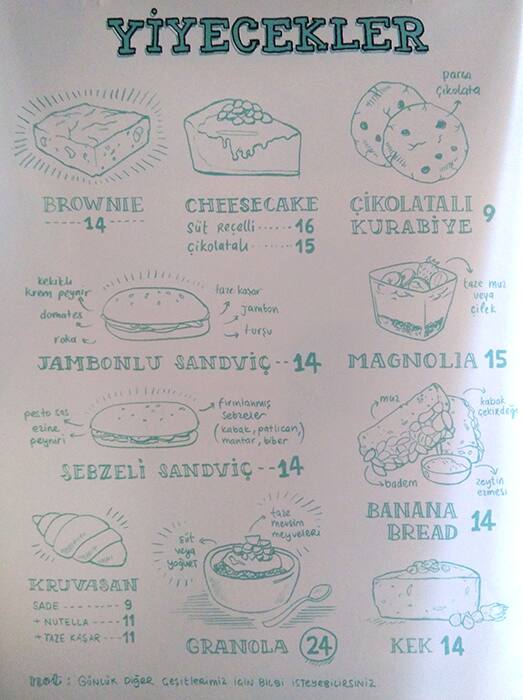 YİYECEKLER
BROWNIE
14
CHEESECAKE
Süt Reçelli 16
Çikolatalı 15
parça
çikolata
ÇİKOLATALI
KURABİYE 9
kekikli
krem peynir
domates
roka
taze kaşar
jambon
turşu
JAMBONLU SANDVİÇ 14
taze muz
veya
çilek
MAGNOLIA 15
pesto sos
ezine
peyniri
fırınlanmış
sebzeler
(kabak, patlıcan,
mantar, biber)
SEBZELİ SANDVİÇ 14
muz
kabak
çekirdeği
badem
zeytin
ezmesi
BANANA
BREAD 14
KRUVASAN
SADE 9
+ NUTELLA 11
+ TAZE KAŞAR 11
süt
veya
yoğurt
taze
mevsim
meyveleri
GRANOLA 24
KEK 14
not: GÜNLÜK DİĞER ÇEŞİTLERİMİZ İÇİN BİLGİ İSTEYEBİLİRSİNİZ